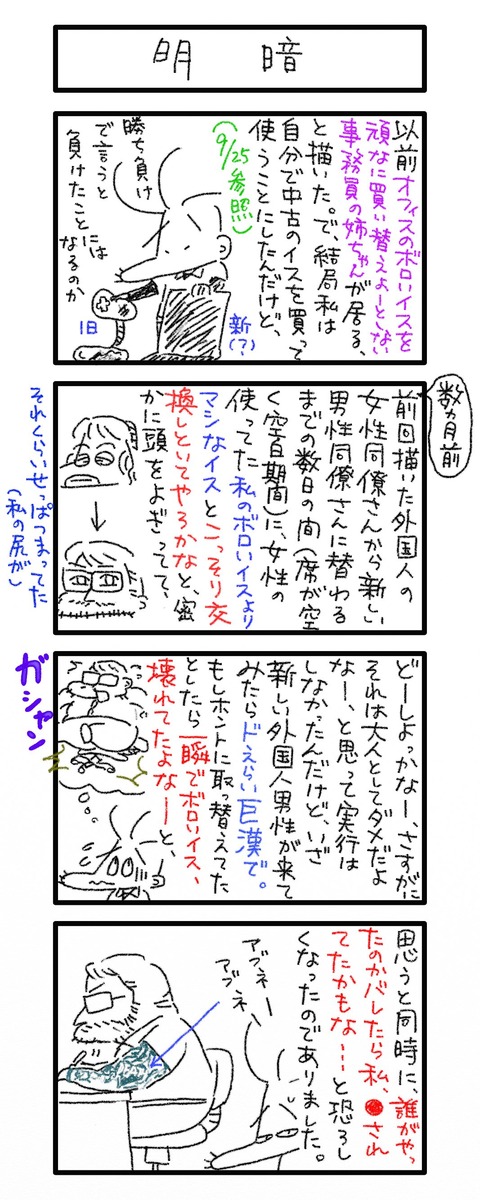 明暗
以前オフィスのボロいイスを
頑なに買い替えよーとしない
事務員の姉ちゃんが居る、
と描いた。で、結局私は
自分で中古のイスを買って
使うことにしたんだけど、
(9/25参照)
勝ち負け
で言うと
負けたことには
なるのか
旧
新(?)
数ヵ月前
前回描いた外国人の
女性同僚さんから新しい
男性同僚さんに替わる
までの数日の間(席が空
く空白期間)に、女性の
使ってた私のボロいイスより
マシなイスとこっそり交
換しといてやるかなと、密
かに頭をよぎってて、
それくらいせっぱつまってた
(私の尻が)
どーしよっかなー、さすがに
それは大人としてダメだよ
なー、と思って実行は
しなかったんだけど、いざ
新しい外国人男性が来て
みたらドえらい巨漢で。
もしホントに取っ替えてた
としたら一瞬でボロいイス、
壊れてたよなーと、
ガシャン
思うと同時に、誰がやっ
たのかバレしたら私、●され
てたかもな…と恐ろし
くなったのでありました。
アブネー
アブネ